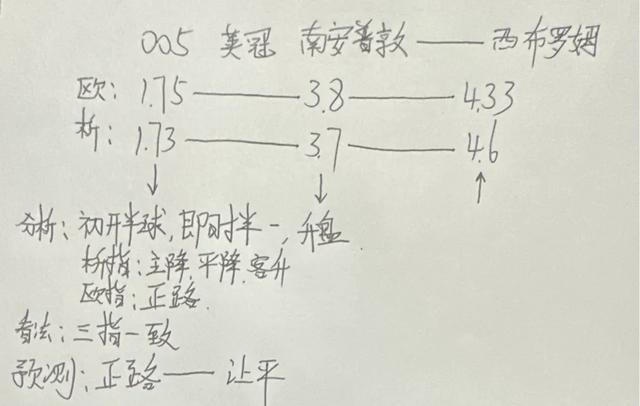 005 英冠 南安普敦 —— 西布罗姆
欧: 1.75 —— 3.8 —— 4.33
析: 1.73 —— 3.7 —— 4.6
↓ ↓ ↑
分析: 初开半球, 即时半一, 升盘
析指: 主降, 平降, 客升
欧指: 正路.
看法: 三指一致
预测: 正路 —— 让平